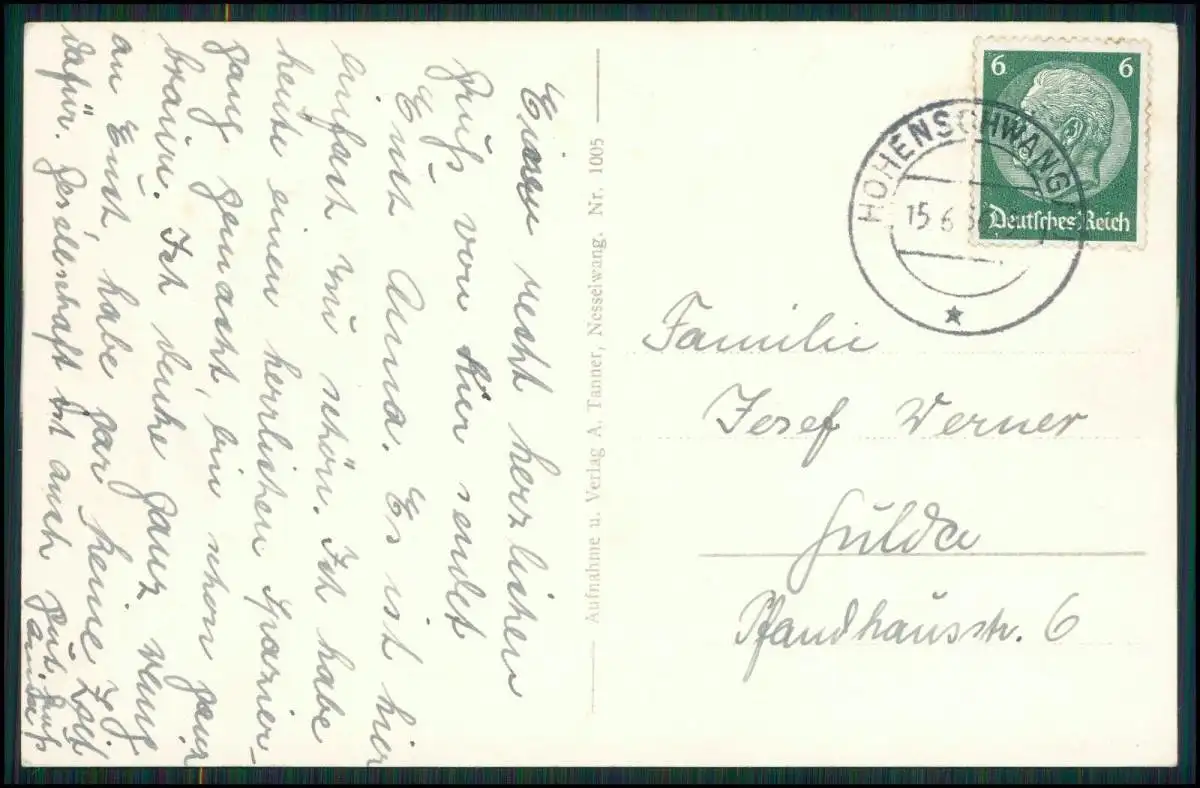 Einen recht herzlichen
Gruß von hier sendet
Euch Anna. Es ist hier
einfach zu schön. Ich habe
heute einen herrlichen Spazier-
gang gemacht, bin schon ganz
braun. Ich denke ganz wenig
an Euch, habe gar keine Zeit
dafür. Gesellschaft ist auch gut. Gruß
Anna
Aufnahme u. Verlag A. Tanner, Nesselwang. Nr. 1005
6 6
Deutsches Reich
HOHENSCHWANGAU
15.6.
Familie
Josef Werner
Fulda
Pfandhausstr. 6